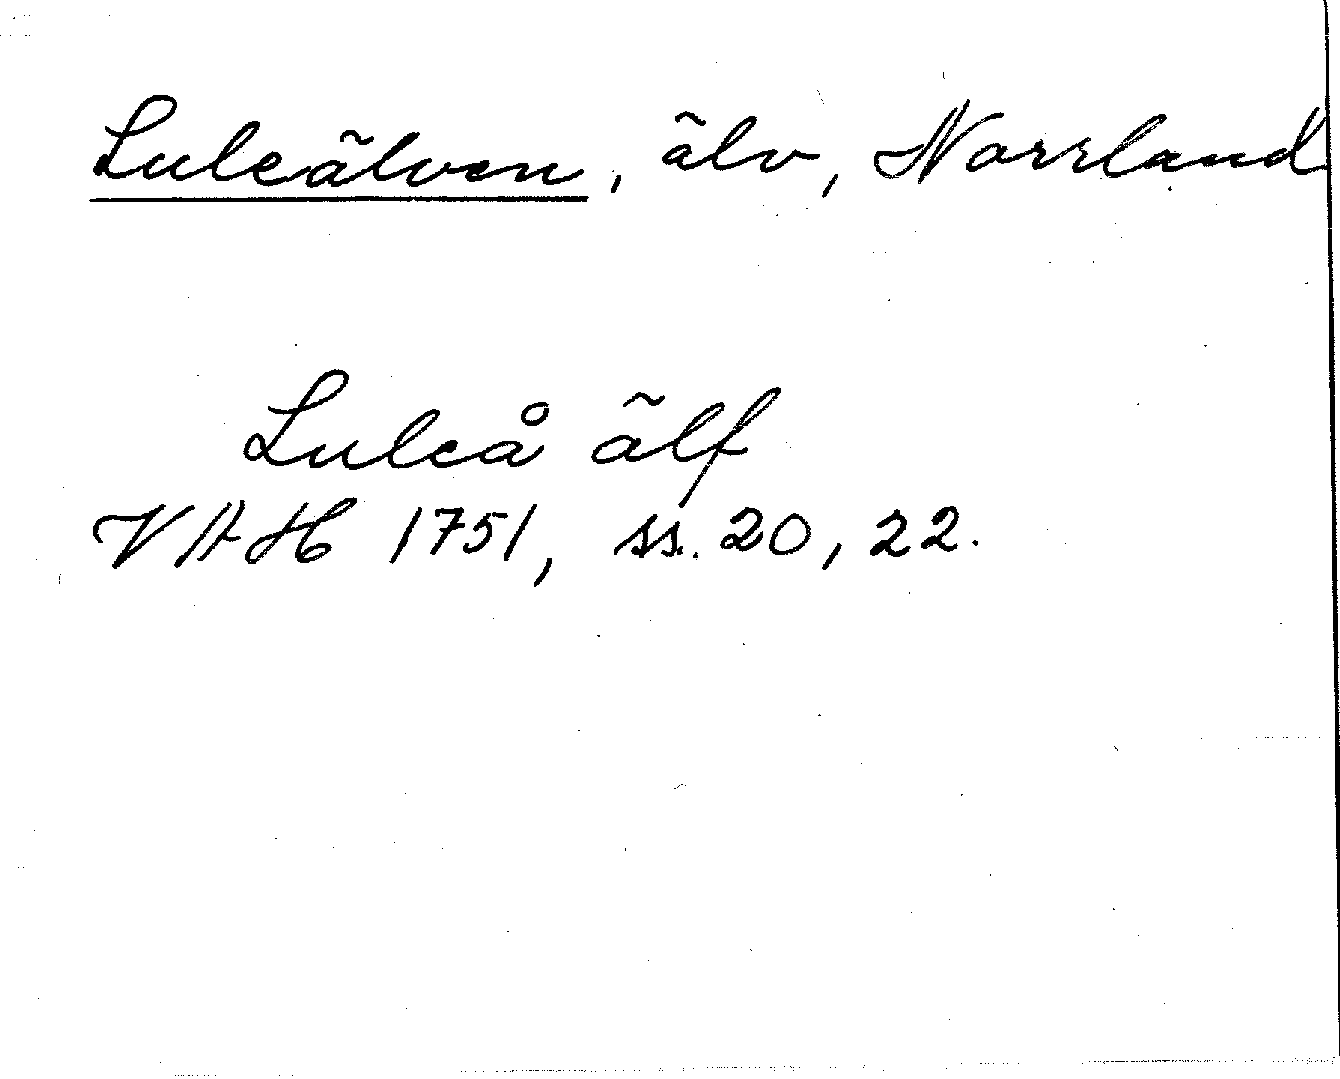 Luleälven, älv, Norrland
Luleå älf
VAH 1751, ss. 20, 22.